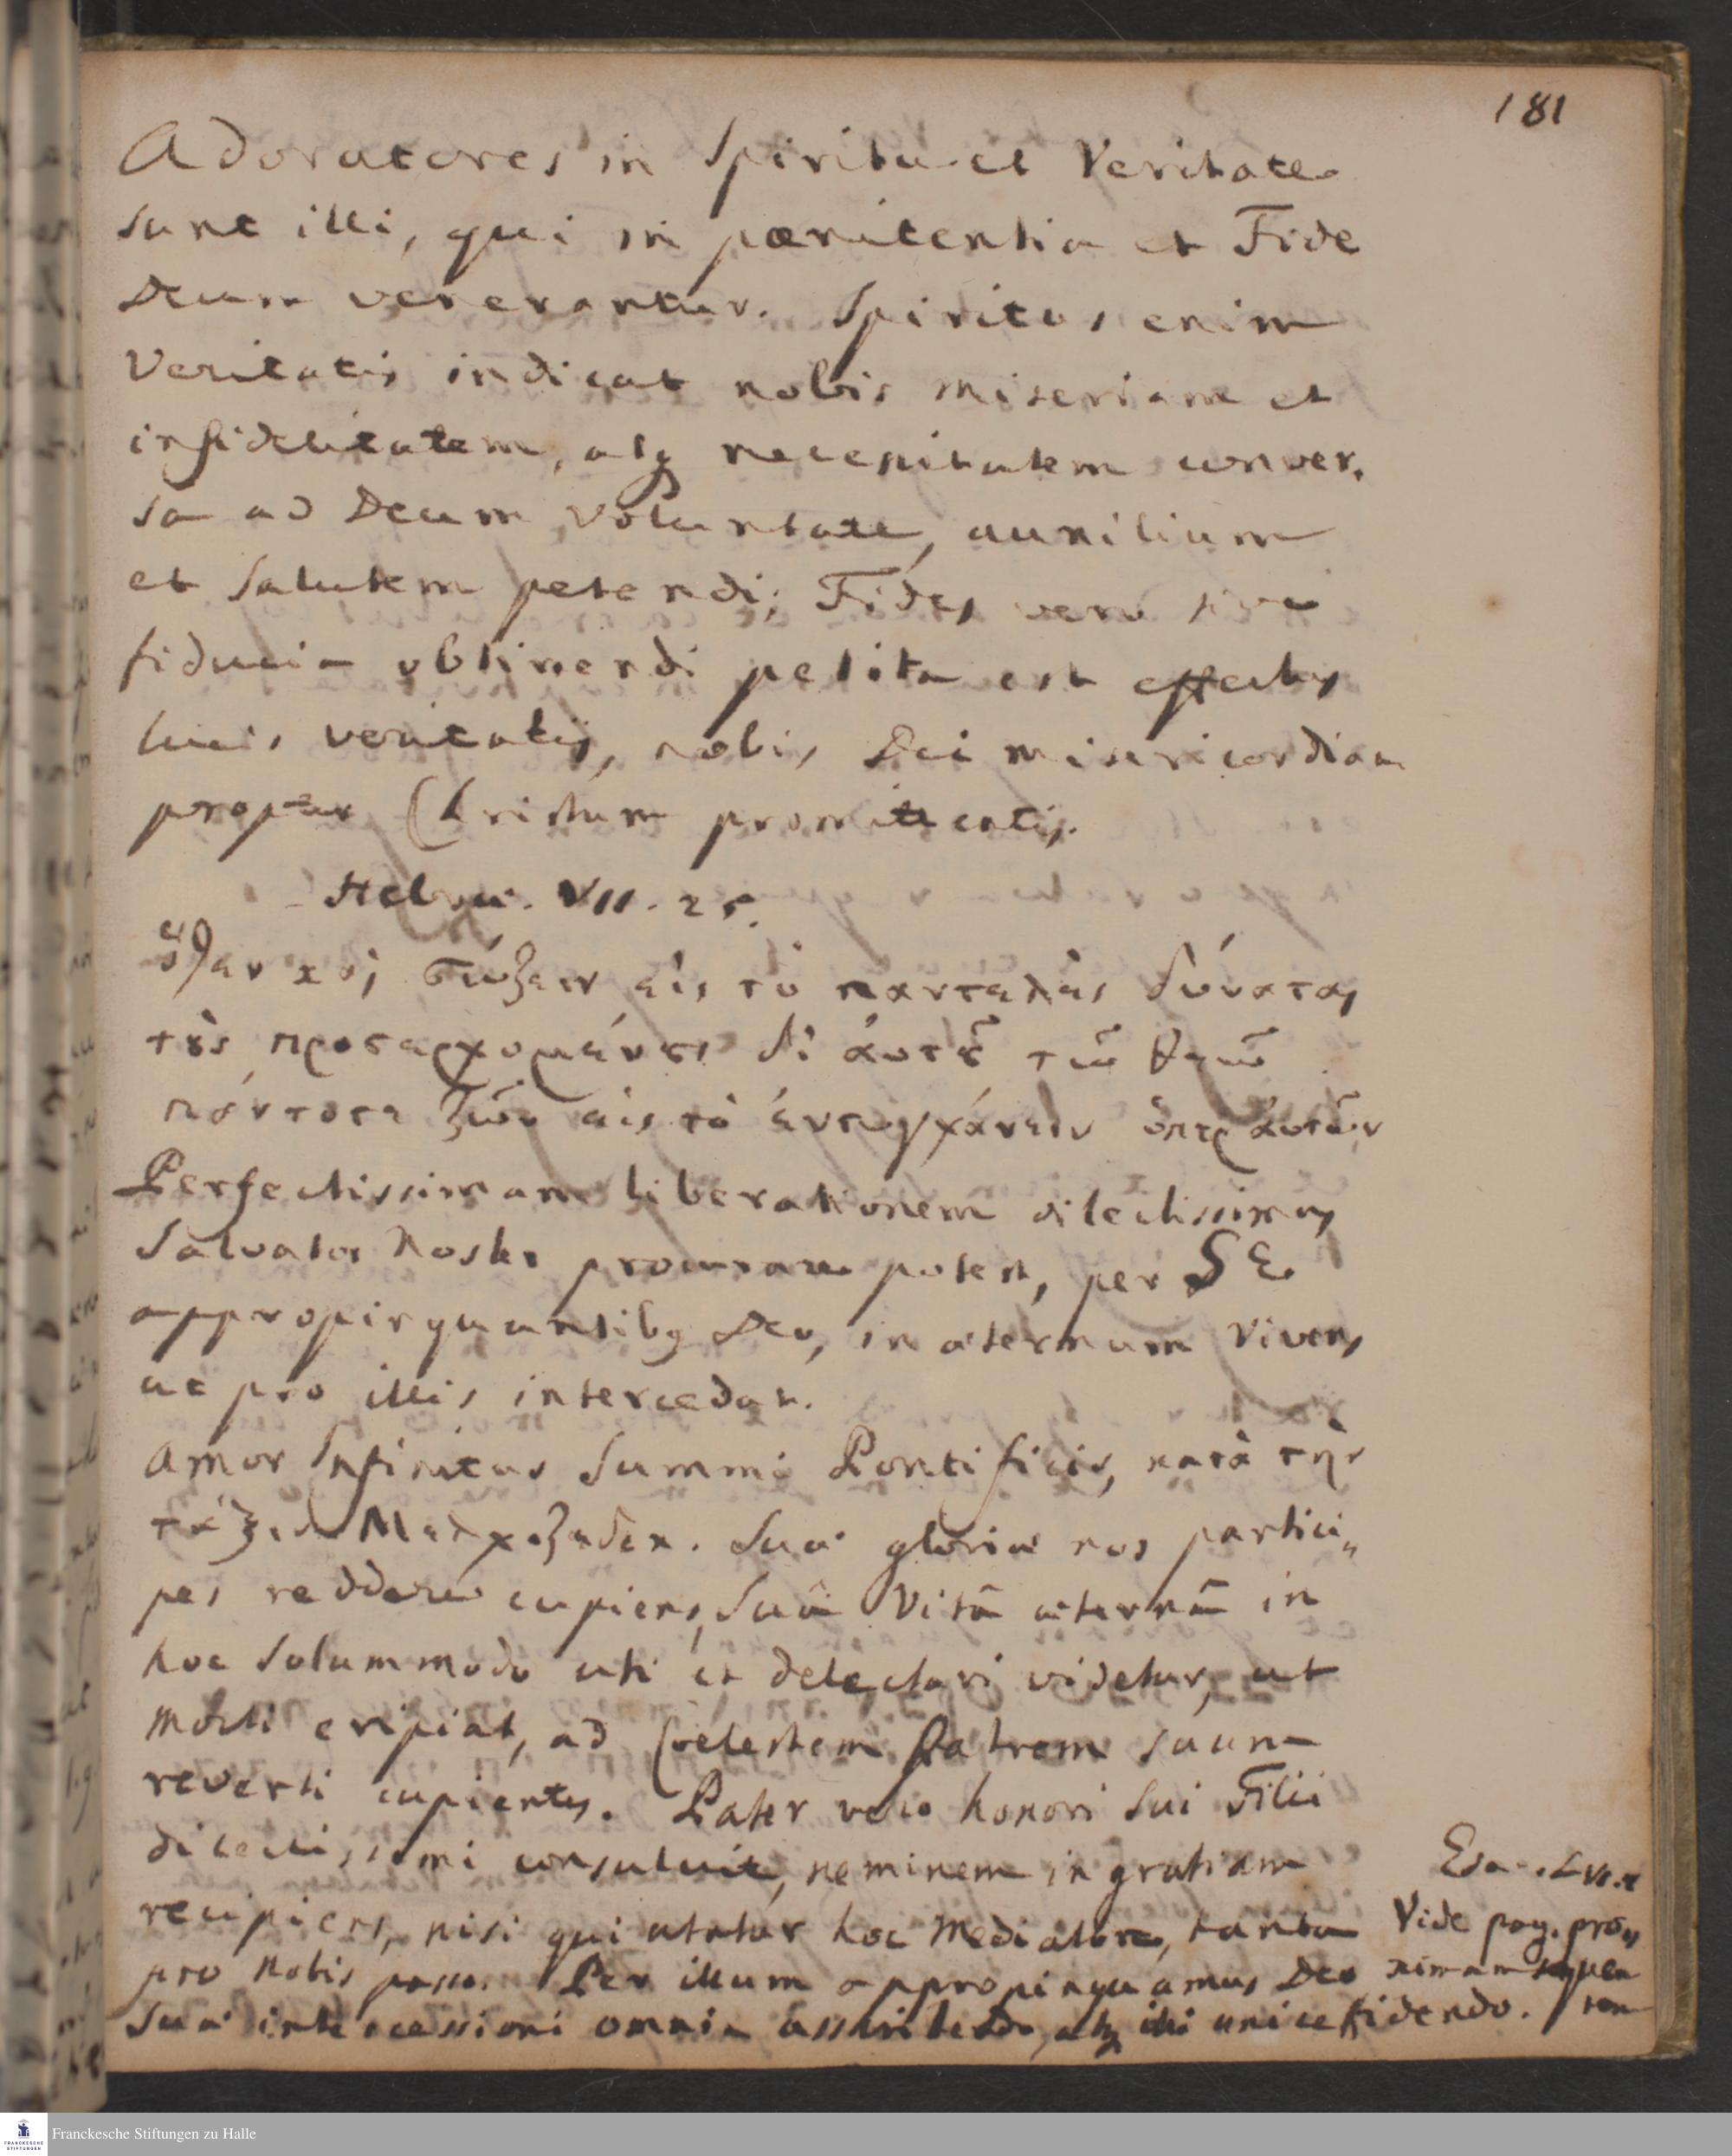 181
Adoratores in Spiritu et Veritate
sunt illi, qui in pœnitentia et Fide
Deum venerantur. Spiritus enim
Veritatis indicat nobis miseriam et
infidelitatem, atq necessitatem conver,
sa ad Deum Voluntate, auxilium
et Salutem petendi; Fides vero sive
fiducia obtinendi petita est effectus
lucis veritatis, nobis Dei misericordiam
propter Christum promittentis.
Hebræ. VII. 25.
ὅθεν καὶ σώζειν εἰς τὸ παντελὲς δύναται
τȣ̀ς προσερχομένȣς δι' ἀυτȣ͂ τῶ θεῶ
πάντοτε ζῶν εἰς τὸ ἐντυγχάνειν ὑπὲρ ἀυτῶν
Perfectissimam liberationem dilectissimus
Salvator Noster procurare potest, per SE
appropinquantibq Deo, in æternum Vivens
ut pro illis intercedat.
Amor Infinitus Summi Pontificis, κατὰ τὴν
τάξιν Μελχιζεδεκ. Suæ gloriæ nos partici„
pes reddere cupiens, Suâ Vitâ æternâ in
hoc solummodo uti et delectari videtur, ut
Morti eripiat, ad Cœlestem Patrem suum
reverti cupientes. Pater vero honori Sui Filii
dilectissimi consuluit, neminem in gratiam
recipiens, nisi qui utatur hoc Mediatore, tanta
pro Nobis passo. Per illum appropinquamus Deo
Suæ intercessioni omnia asscribendo, atq illi unice fidendo.
Vide pag. pro„